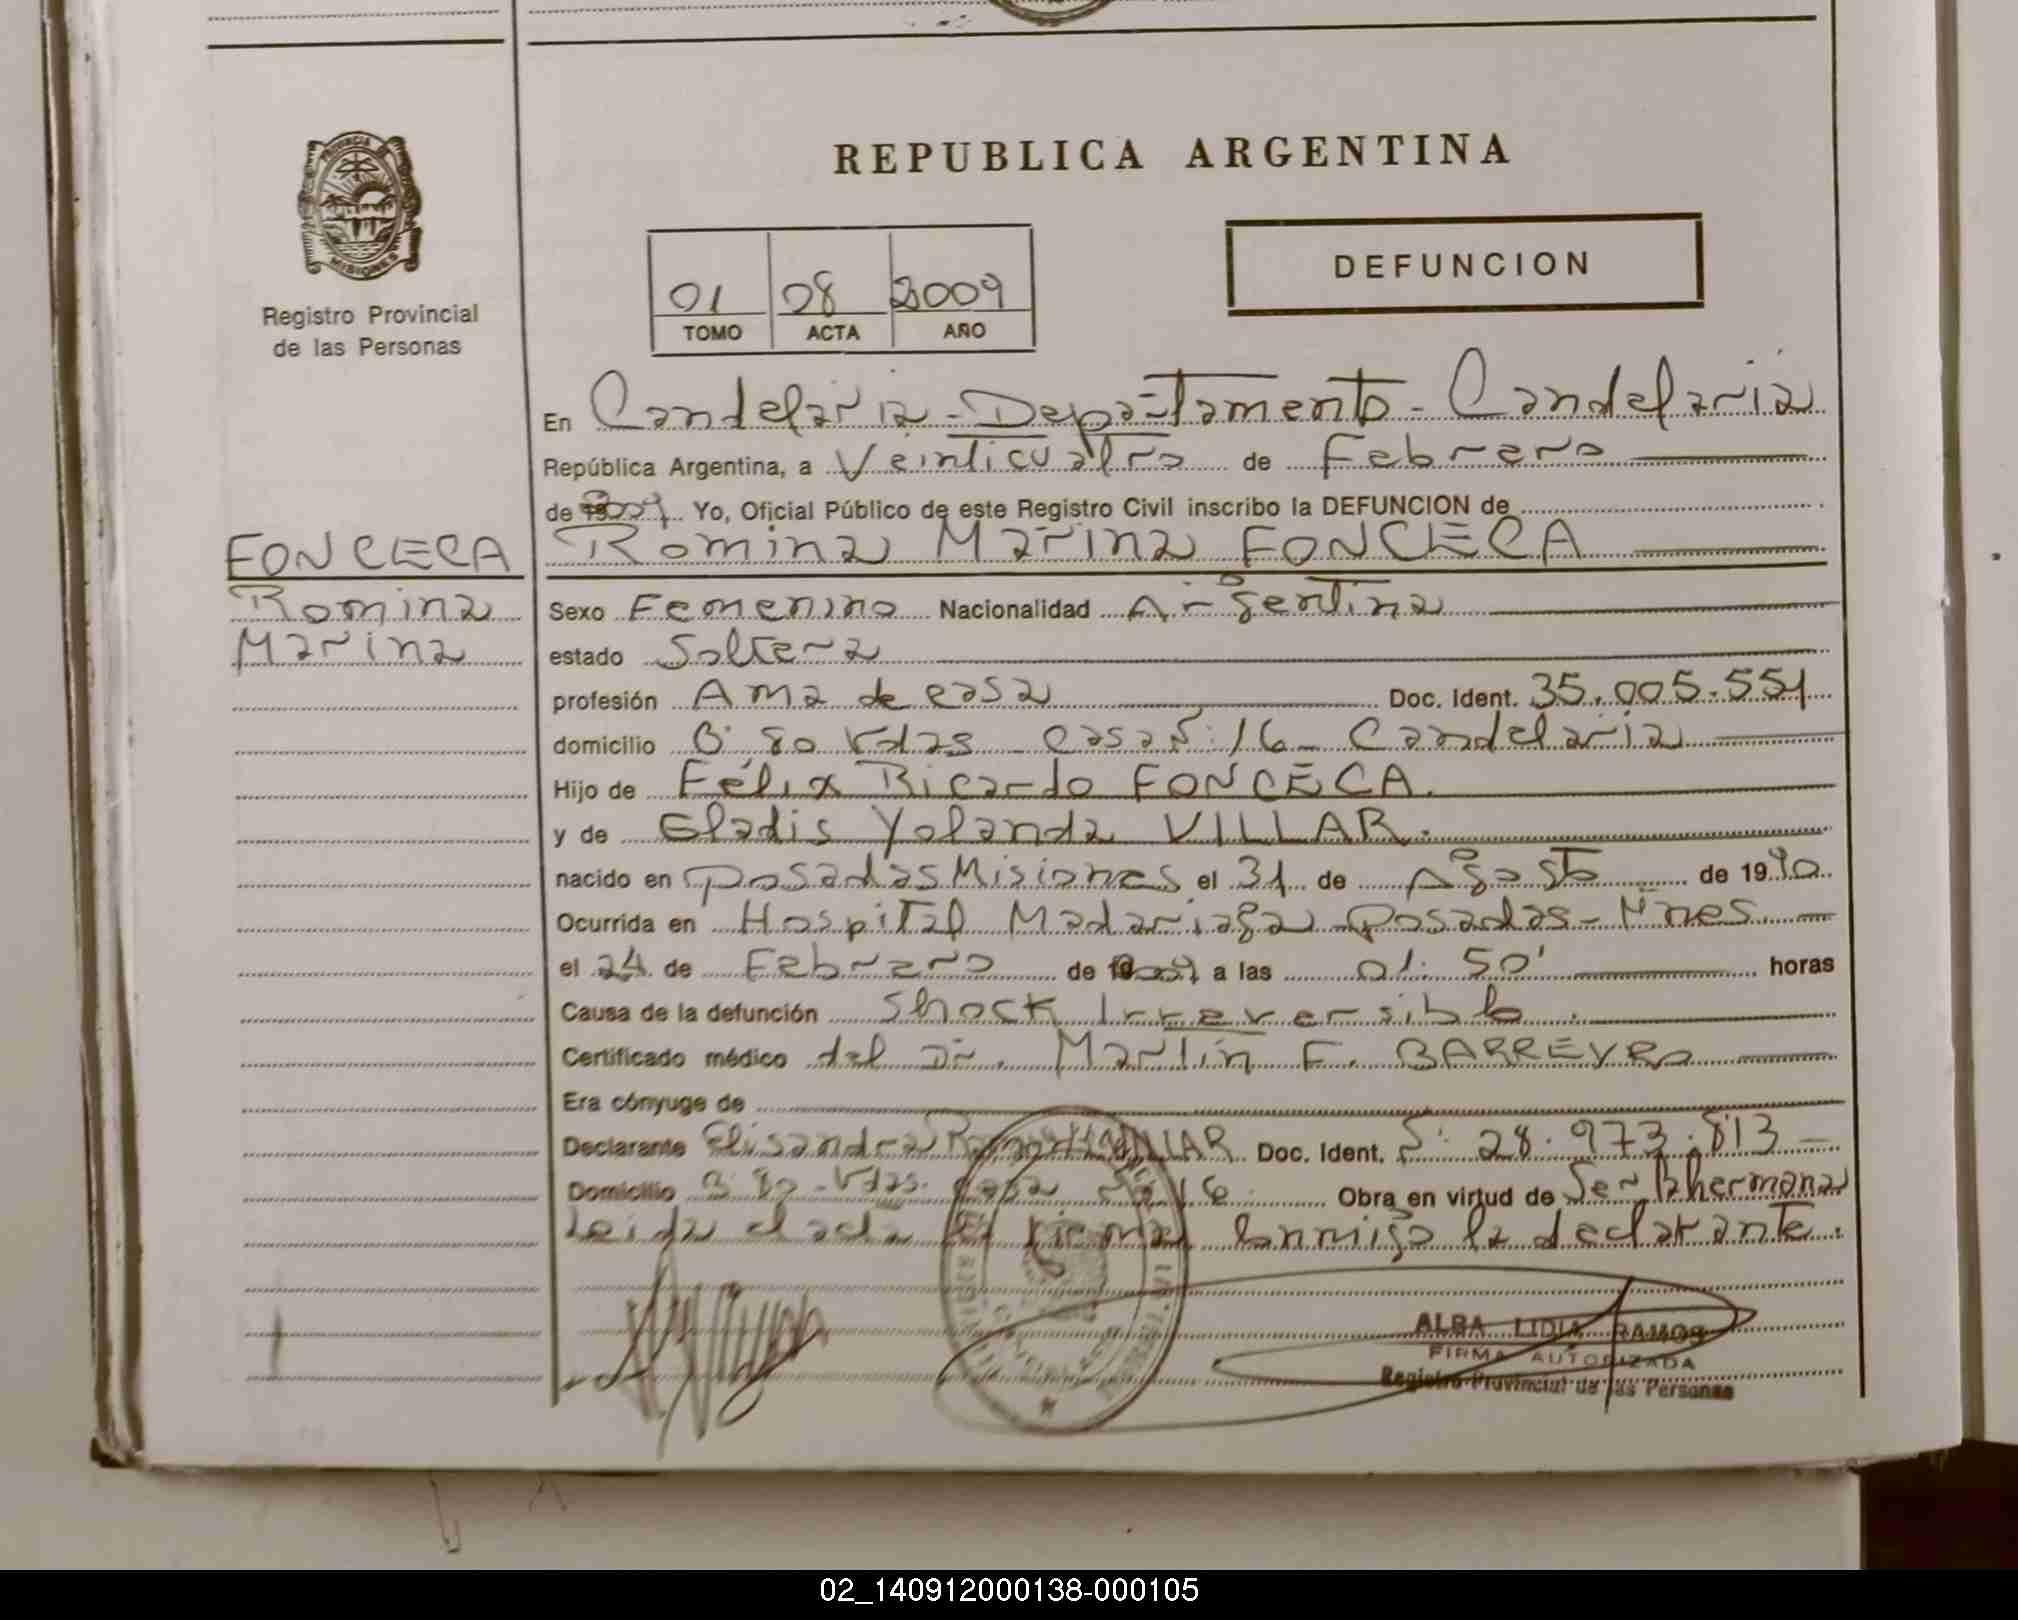 PROVINCIA
MISIONES
Registro Provincial
de las Personas
REPUBLICA ARGENTINA
01 08 2009
TOMO ACTA AÑO
DEFUNCION
En Candelaria - Departamento - Candelaria
República Argentina, a Veinticuatro de Febrero
de 2009 Yo, Oficial Público de este Registro Civil inscribo la DEFUNCION de
FONCECA
Romina Marina FONCECA
Romina
Marina
Sexo Femenino Nacionalidad Argentina
estado Soltera
profesión Ama de casa Doc. Ident. 35.005.551
domicilio B° 80 Vdas - casa N: 16 - Candelaria
Hijo de Félix Ricardo FONCECA.
y de Gladis Yolanda VILLAR.
nacido en Posadas Misiones el 31 de Agosto de 1990
Ocurrida en Hospital Madariaga - Posadas - Mnes
el 24 de Febrero de 2009 a las 01: 50' horas
Causa de la defunción Shock Irreversible.
Certificado médico del Dr. Martín F. BARREYRO
Era cónyuge de
Declarante Elisandra VILLAR Doc. Ident. N: 28.973.813 -
Domicilio B 80 - Vdas. casa N: 16 Obra en virtud de Ser la hermana
Leida el acta firma conmigo la declarante.
ALBA LIDIA RAMOS
FIRMA AUTORIZADA
Registro Provincial de las Personas
02_140912000138-000105